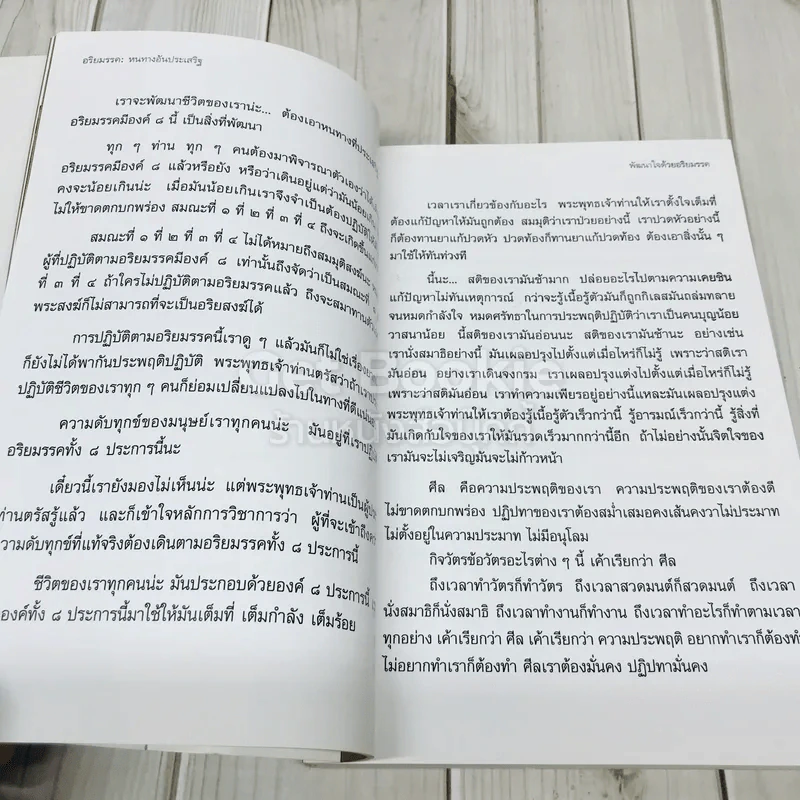 อริยมรรค: หนทางอันประเสริฐ
เราจะพัฒนาชีวิตของเราน่ะ... ต้องเอาหนทางที่ประเสริฐ
อริยมรรคมีองค์ ๘ นี้ เป็นสิ่งที่พัฒนา
ทุก ๆ ท่าน ทุก ๆ คนต้องมาพิจารณาตัวเองว่า
อริยมรรคมีองค์ ๘ แล้วหรือยัง หรือว่าเดินอยู่แต่ว่ามันน้อย
คงจะน้อยเกินน่ะ เมื่อมันน้อยเกินเราจึงจำเป็นต้องปฏิบัติ
ไม่ให้ขาดตกบกพร่อง สมณะที่ ๑ ที่ ๒ ที่ ๓ ที่ ๔ ถึงจะเกิดขึ้น
สมณะที่ ๑ ที่ ๒ ที่ ๓ ที่ ๔ ไม่ได้หมายถึงสมมุติสงฆ์นะ
ผู้ที่ปฏิบัติตามอริยมรรคมีองค์ ๘ เท่านั้นถึงจัดว่าเป็นสมณะที่
ที่ ๓ ที่ ๔ ถ้าใครไม่ปฏิบัติตามอริยมรรคแล้ว ถึงจะสมาทาน
พระสงฆ์ก็ไม่สามารถที่จะเป็นอริยสงฆ์ได้
การปฏิบัติตามอริยมรรคนี้เราดู ๆ แล้วมันก็ไม่ใช่เรื่อง
ก็ยังไม่ได้พากันประพฤติปฏิบัติ พระพุทธเจ้าท่านตรัสว่าถ้าเรา
ปฏิบัติชีวิตของเราทุก ๆ คนก็ย่อมเปลี่ยนแปลงไปในทางที่ดี
ความดับทุกข์ของมนุษย์เราทุกคนน่ะ มันอยู่ที่เรา
อริยมรรคทั้ง ๘ ประการนี้นะ
เดี๋ยวนี้เรายังมองไม่เห็นน่ะ แต่พระพุทธเจ้าท่านเป็นผู้
ท่านตรัสรู้แล้ว และก็เข้าใจหลักการวิชาการว่า ผู้ที่จะเข้าถึง
ความดับทุกข์ที่แท้จริงต้องเดินตามอริยมรรคทั้ง ๘ ประการนี้
ชีวิตของเราทุกคนน่ะ มันประกอบด้วยองค์ ๘ ประการนี้
องค์ทั้ง ๘ ประการนี้มาใช้ให้มันเต็มที่ เต็มกำลัง เต็มร้อย
พัฒนาใจด้วยอริยมรรค
เวลาเราเกี่ยวข้องกับอะไร พระพุทธเจ้าท่านให้เราตั้งใจเต็มที่
ต้องแก้ปัญหาให้มันถูกต้อง สมมุติว่าเราป่วยอย่างนี้ เราปวดหัวอย่างนี้
ก็ต้องทานยาแก้ปวดหัว ปวดท้องก็ทานยาแก้ปวดท้อง ต้องเอาสิ่งนั้น ๆ
มาใช้ให้ทันท่วงที
นี้นะ... สติของเรามันช้ามาก ปล่อยอะไรไปตามความเคยชิน
แก้ปัญหาไม่ทันเหตุการณ์ กว่าจะรู้เนื้อรู้ตัวมันก็ถูกกิเลสมันถล่มทลาย
จนหมดกำลังใจ หมดศรัทธาในการประพฤติปฏิบัติว่าเราเป็นคนบุญน้อย
วาสนาน้อย นี้สติของเรามันอ่อนนะ สติของเรามันช้านะ อย่างเช่น
เรานั่งสมาธิอย่างนี้ มันเผลอปรุงไปตั้งแต่เมื่อไหร่ก็ไม่รู้ เพราะว่าสติเรา
มันอ่อน อย่างเราเดินจงกรม เราเผลอแต่งไปตั้งแต่เมื่อไหร่ก็ไม่รู้
เพราะว่าสติมันอ่อน เราทำความเพียรอยู่อย่างนี้แหละมันเผลอปรุงแต่ง
พระพุทธเจ้าท่านให้เราต้องรู้เนื้อรู้ตัวเร็วกว่านี้ รู้อารมณ์เร็วกว่านี้ รู้สิ่งที่
มันเกิดกับใจของเราให้มันรวดเร็วมากกว่านี้อีก ถ้าไม่อย่างนั้นจิตใจของ
เรามันจะไม่เจริญมันจะไม่ก้าวหน้า
ศีล คือความประพฤติของเรา ความประพฤติของเราต้องดี
ไม่ขาดตกบกพร่อง ปฏิปทาของเราต้องสม่ำเสมอคงเส้นคงวาไม่ประมาท
ไม่ตั้งอยู่ในความประมาท ไม่มีอนุโลม
กิจวัตรข้อวัตรอะไรต่าง ๆ นี้ เค้าเรียกว่า ศีล
ถึงเวลาทำวัตรก็ทำวัตร ถึงเวลาสวดมนต์ก็สวดมนต์ ถึงเวลา
นั่งสมาธิก็นั่งสมาธิ ถึงเวลาทำงานก็ทำงาน ถึงเวลาทำอะไรก็ทำตามเวลา
ทุกอย่าง เค้าเรียกว่า ศีล เค้าเรียกว่า ความประพฤติ อยากทำเราก็ต้องทำ
ไม่อยากทำเราก็ต้องทำ ศีลเราต้องมั่นคง ปฏิปทามั่นคง